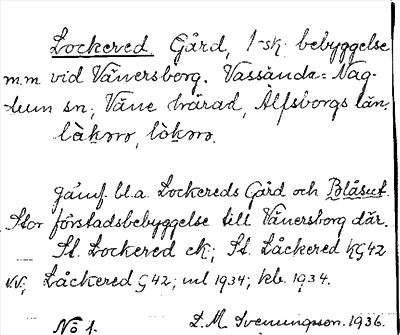 Lockered Gård, 1 sk. bebyggelse
m.m. vid Vänersborg. Vassända-Nag-
lum sn; Väne härad, Älfsborgs län.
jämf. bl.a. Lockereds Gård och Blåsut.
Stor förstadsbebyggelse till Vänersborg där.
St. Lockered ek; St. Låckered KG42
Låckered G42; ml 1934; kb. 1934.
No 1. 1936.